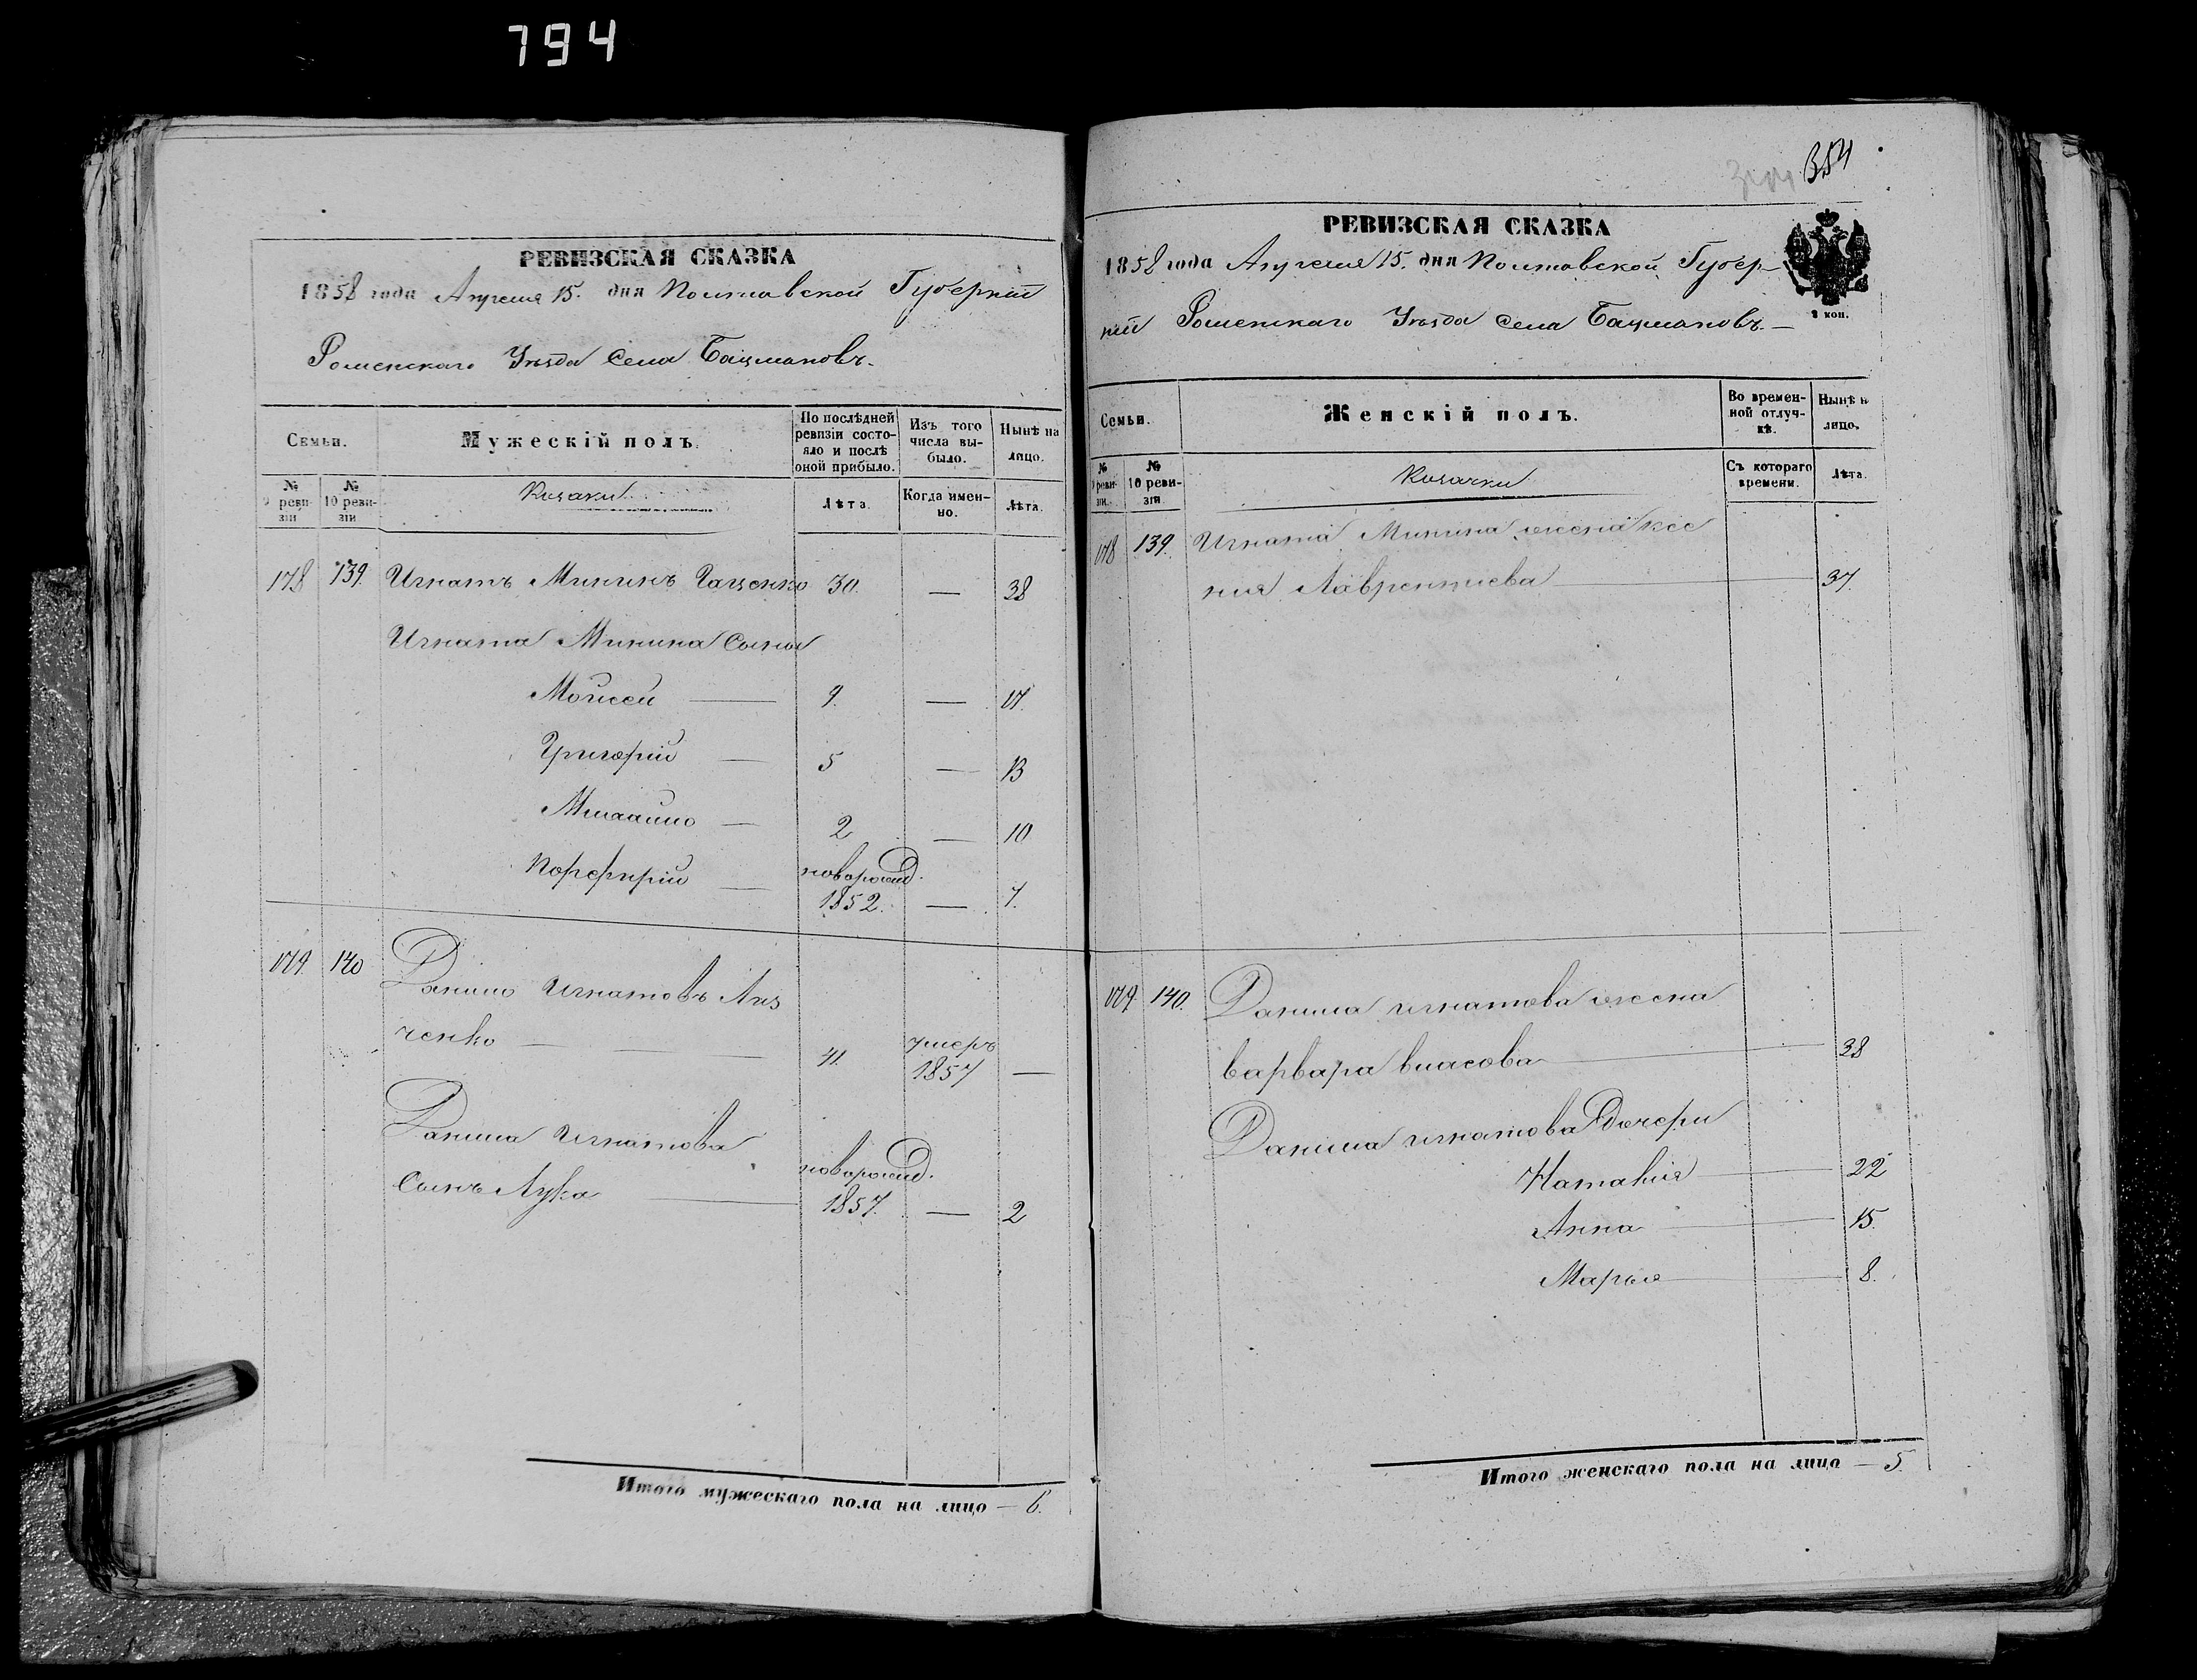 794
РЕВИЗСКАЯ СКАЗКА
1858 года Апреля 15. дня Полтавской Губерніи
Роменскаго Уѣзда Села Бацмановъ.
Семьи.
Мужескій полъ.
По послѣдней ревизіи состояло и послѣ оной прибыло.
Изъ того числа выбыло.
Нынѣ на лицо.
№ 9 ревизіи
№ 10 ревизіи
Козаки
Лѣта.
Когда именно.
Лѣта.
178 139. Игнатъ Мининъ 30. — 38
Игната Минина сыны
Мойсей — 9. — 17.
Григорій — 5 — 13
Михайло — 2 — 10
Порфирій — новорожд. 1852. — 7.
179. 140 Данило Игнатовъ
ченко — 41. умеръ 1857 —
Данила Игнатова
сынъ Лука — новорожд. 1857. — 2
Итого мужескаго пола на лицо — 6.
354
РЕВИЗСКАЯ СКАЗКА
1858 года Апреля 15. дня Полтавской Губер-
ніи Роменскаго Уѣзда села Бацмановъ. —
Семьи.
Женскій полъ.
Во временной отлучкѣ.
Нынѣ н лицо.
№ 9 ревизіи.
№ 10 ревизіи
Козачки
Съ котораго времени.
Лѣта.
178 139. Игната Минина жена Ксе
ния Лаврентиева — 37.
179. 140. Данила игнатова жена
варвара власова — 38
Данила игнатова дочери
Наталия — 22
Анна — 15.
Марья — 8.
Итого женскаго пола на лицо — 5.